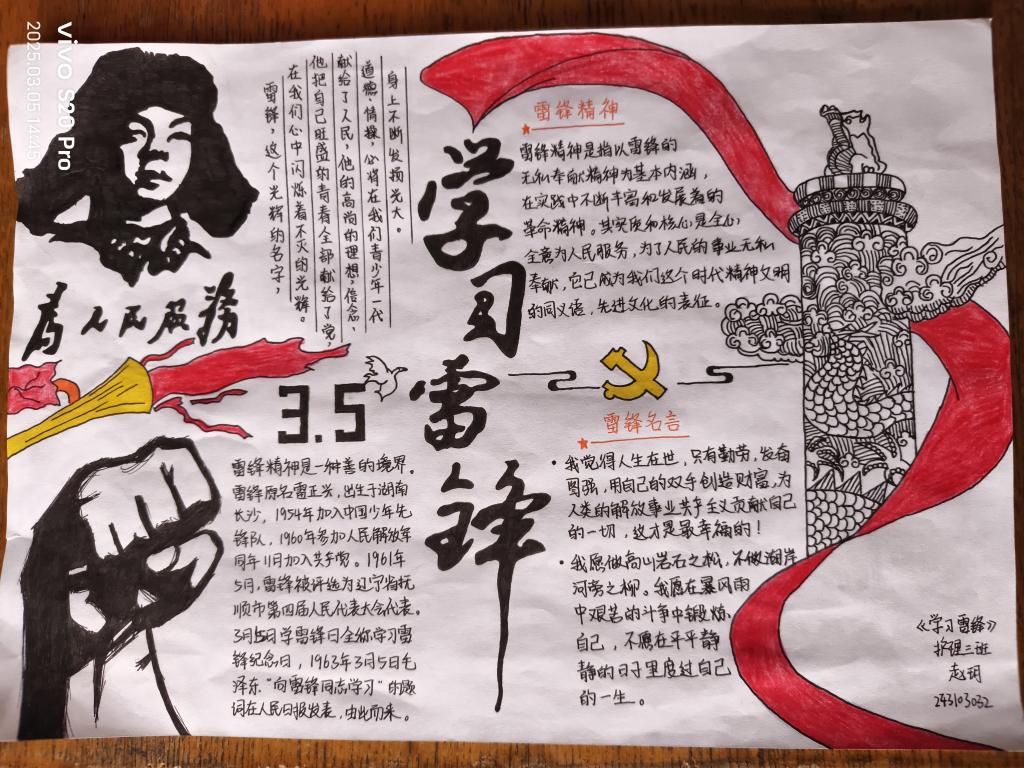 vivo S20 Pro
2025.03.05 14:45
为人民服务
雷锋，这个光辉的名字，
在我们心中闪烁着不灭的光辉。
他把自己旺盛的青春全部献给了党，
献给了人民，他的高尚的理想，信念、
道德、情操，必将在我们青少年一代
身上不断发扬光大。
学习雷锋
3.5
雷锋精神是一种善的境界.
雷锋原名雷正兴，出生于湖南
长沙，1954年加入中国少年先
锋队，1960年参加人民解放军
同年11月加入共产党。1961年
5月，雷锋被评选为辽宁省抚
顺市第四届人民代表大会代表。
3月5日学雷锋日全称学习雷
锋纪念日，1963年3月5日毛
泽东“向雷锋同志学习”的题
词在人民日报发表，由此而来。
雷锋精神
雷锋精神是指以雷锋的
无私奉献精神为基本内涵，
在实践中不断丰富和发展着的
革命精神。其实质和核心是全心
全意为人民服务，为了人民的事业无私
奉献，它已成为我们这个时代精神文明
的同义语，先进文化的表征。
雷锋名言
·我觉得人生在世，只有勤劳，发奋
图强，用自己的双手创造财富，为
人类的解放事业共产主义贡献自己
的一切，这才是最幸福的！
·我愿做高山岩石之松，不做湖岸
河旁之柳。我愿在暴风雨
中艰苦的斗争中锻炼
自己，不愿在平平静
静的日子里度过自己
的一生。
《学习雷锋》
护理三班
赵玥
243103032